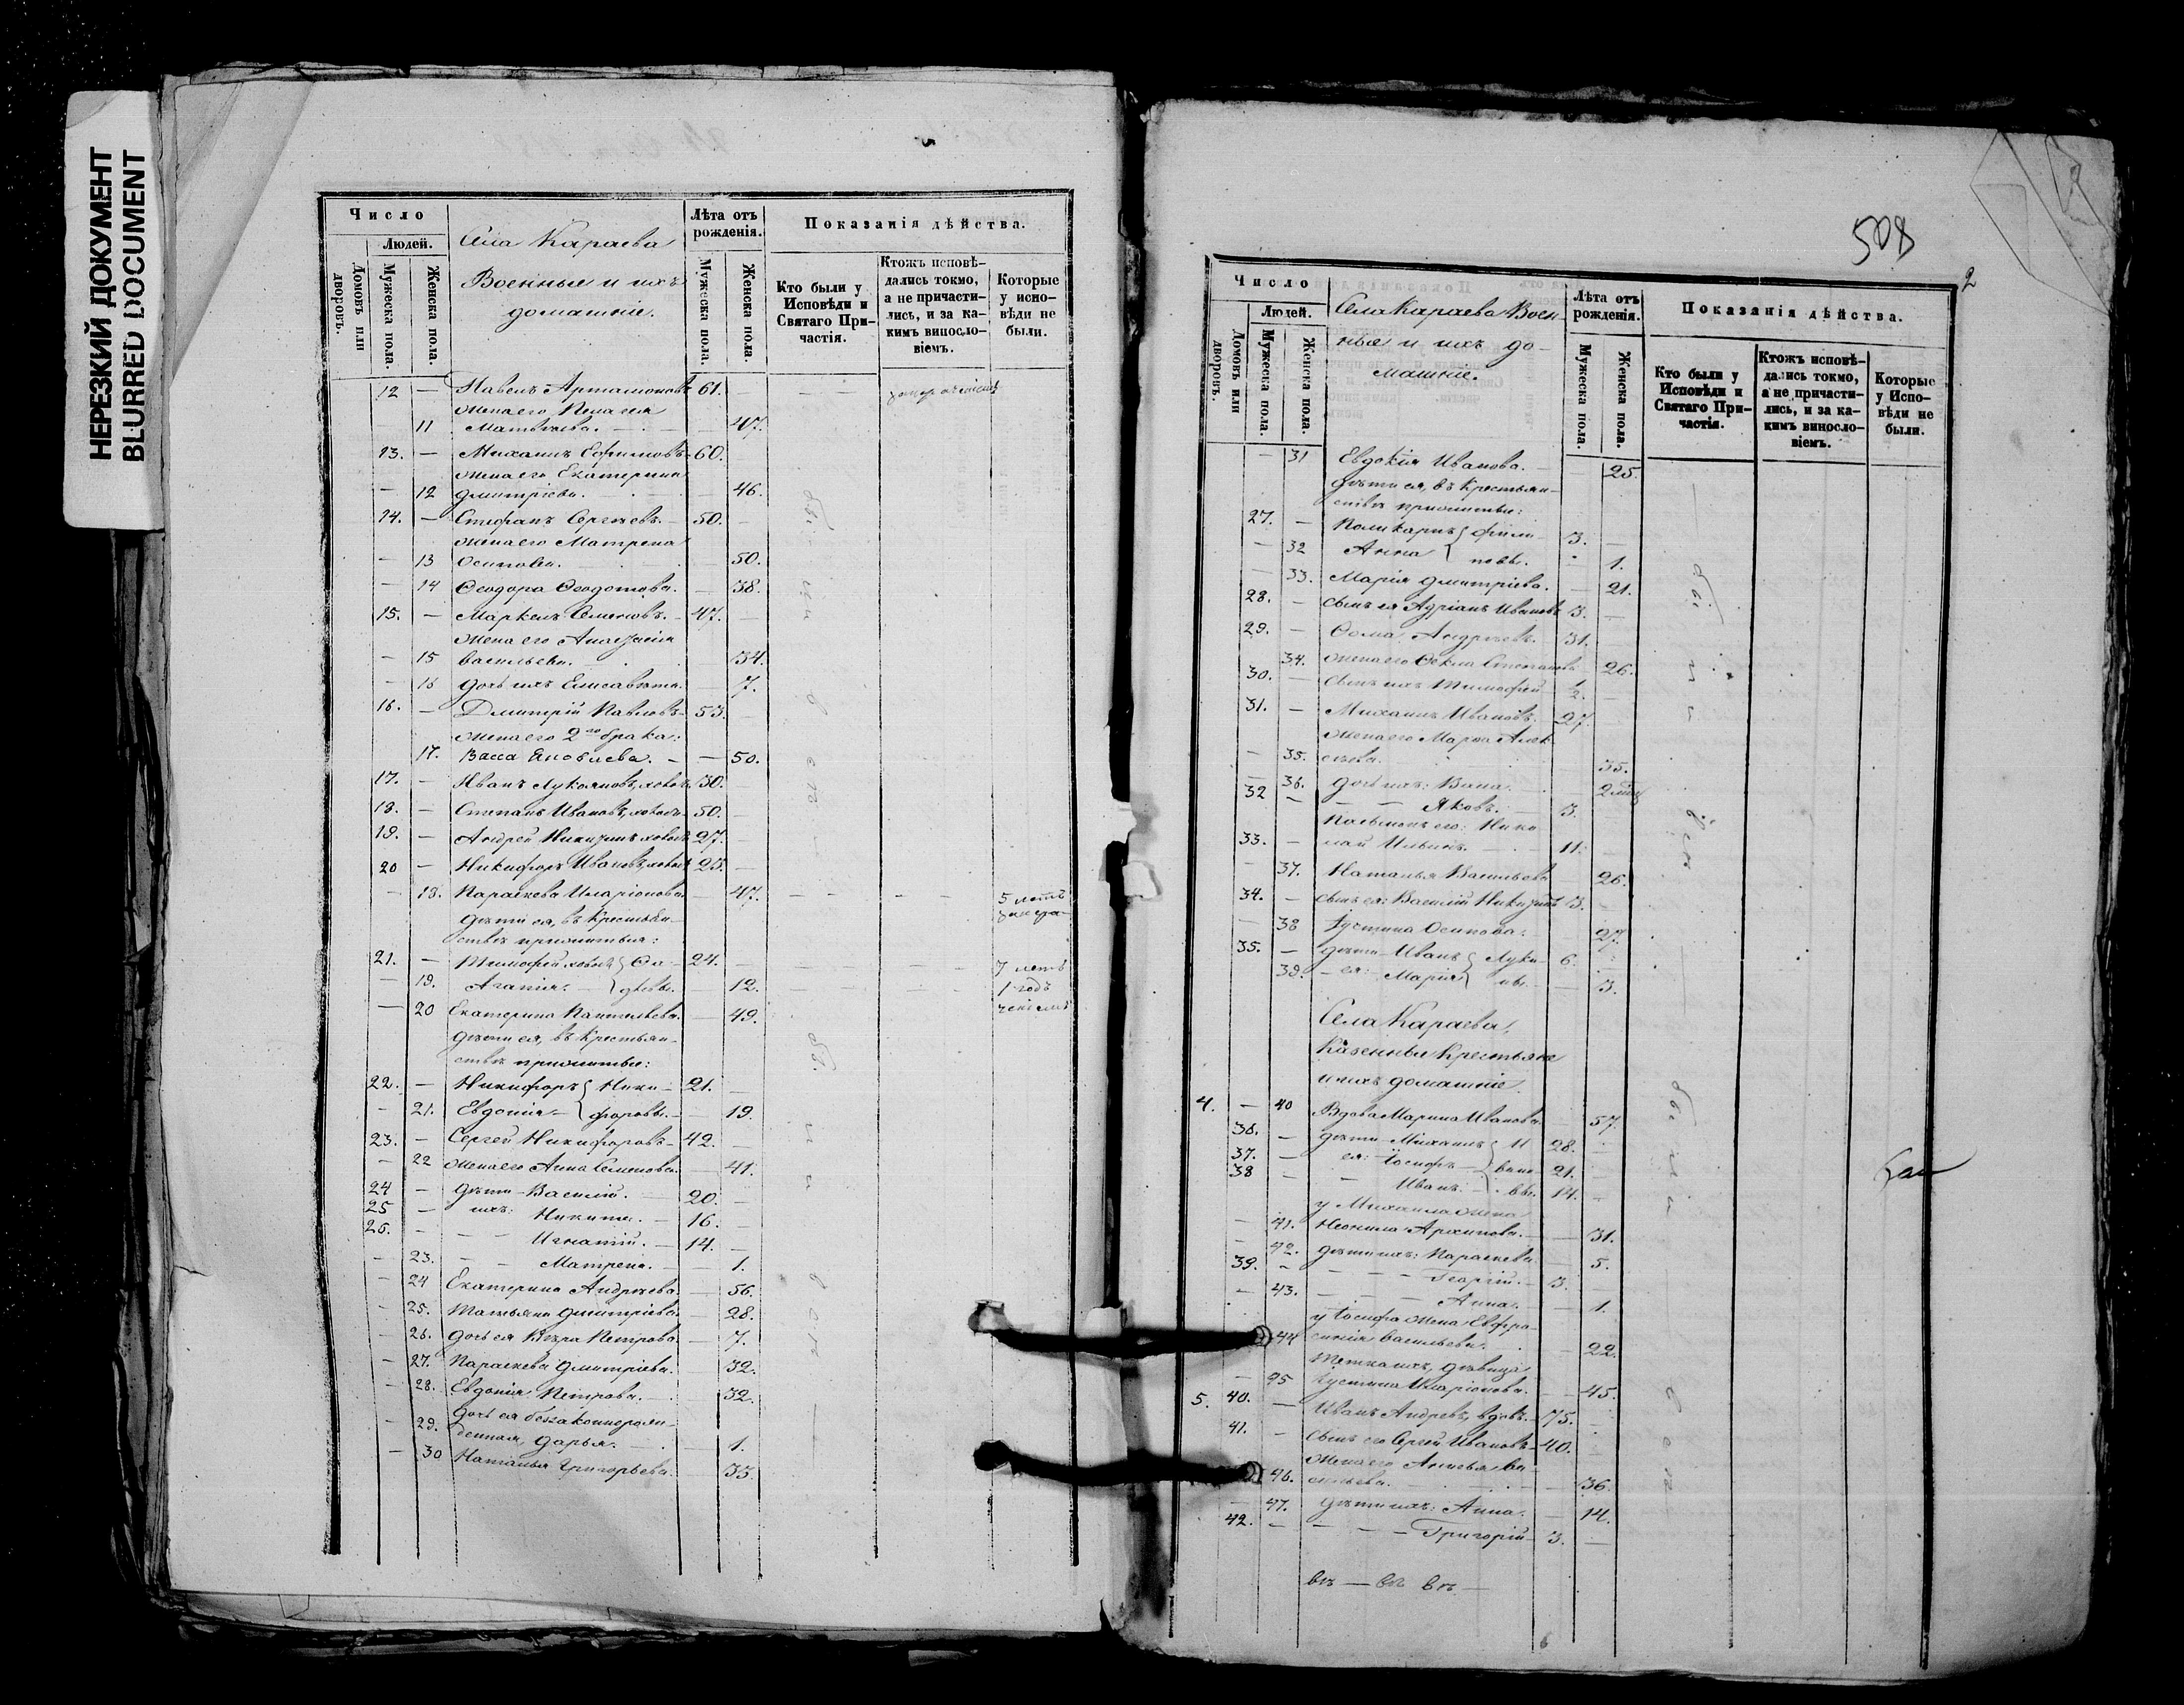 НЕРЕЗКИЙ ДОКУМЕНТ
BLURRED DOCUMENT
Число
Людей.
Домовъ или дворовъ.
Мужеска пола.
Женска пола.
Села Караева
Военные и ихъ
домашніе.
Лѣта отъ рожденія.
Мужеска пола.
Женска пола.
Показанія дѣйства.
Кто были у Исповѣди и Святаго Причастія.
Ктожъ исповѣдались токмо, а не причастились, и за какимъ винословіемъ.
Которые у исповѣди не были.
12 — Павелъ Артамоновъ 61.
жена его Пелагея
11 Матвѣева. — 47.
13. — Михаилъ Ефимовъ 60.
жена его Екатерина
— 12 Дмитріева. 46.
14. — Стефанъ Сергѣевъ. 50. —
жена его Матрена
— 13 Осипова. 50.
— 14 Ѳеодора Ѳеодотова. — 38.
15. — Маркелъ Семеновъ. 47. —
жена его Анастасія
— 15 Васильева. 34.
— 16 дочь ихъ Елисавета. — 7.
16. — Дмитрій Павловъ 53.
жена его 2го брака:
17. Васса Яковлева. — — 50.
17. — Иванъ Лукояновъ, холостъ 30.
18. — Степанъ Ивановъ, холостъ 50.
19. — Андрей Никитинъ холостъ 27.
20 — Никифоръ Ивановъ, холостъ 25. —
— 18. Параскева Иларіонова 47. — — 5 летъ
дѣти ея, въ крестьян-
ствѣ прижитыя:
21. — Тимофей холостъ 24. 7 летъ
— 19. Агапія. — 12. 1 годъ
— 20 Екатерина Пантелѣева. — 49.
дѣти ея, въ крестьян-
ствѣ прижитые:
22. — Никифоръ } Ники- 21. —
— 21. Евдокія — } форовы. — 19.
23. — Сергей Никифоровъ 42. —
— 22 жена его Анна Семенова. — 41.
24 — дѣти — Василій. 20. —
25 — ихъ: Никита. — 16. —
26. — — — Игнатій. — 14. —
— 23. — Матрена. — — 1.
— 24 Екатерина Андреева — 56.
— 25. Татьяна Дмитріева — 28.
— 26. дочь ея Вѣра Петрова — 7.
— 27. Параскева Дмитріева. 32.
— 28. Евдокія Петрова. 32.
дочь ея беззаконнорож-
— 29. денная, Дарья. — 1.
— 30 Наталья Григорьева. 33.
508
2
Число
Людей.
Домовъ или дворовъ.
Мужеска пола.
Женска пола.
Села Караева Воен-
ныя и ихъ до-
машніе.
Лѣта отъ рожденія.
Мужеска пола.
Женска пола.
Показанія дѣйства.
Кто были у Исповѣди и Святаго Причастія.
Ктожъ исповѣдались токмо, а не причастились, и за какимъ винословіемъ.
Которые у Исповѣди не были.
— 31 Евдокія Иванова. 25.
дѣти ея, въ крестьян-
ствѣ прижитые:
27. — Поликарпъ } Фили- 3. —
— 32 Анна } повы. 1.
— 33. Марія Дмитріева. 21.
28. — сынъ ея Адріанъ Ивановъ 3. —
29. — Ѳома Андреевъ. 31.
34. жена его Ѳекла Степанова 26.
30. — сынъ ихъ Тимофей 1/2. —
31. — Михаилъ Ивановъ. 27
жена его Марѳа Алек-
— 35. сѣева. 35.
— 36. дочь ихъ:
32 — — — Яковъ. 3.
Пасынокъ его: Нико-
33. — лай Ильинъ. 11.
— 37. Наталья Васильева 26.
34. — сынъ ея: Василій Никитинъ 3. —
— 38 Іустина Осипова: 27.
35. — дѣти — Иванъ } Луки- 6.
39. — ея: — Марія } ны. — 3.
Села Караева,
Казенные крестьяне
и ихъ домашніе.
4. — 40 Вдова Марина Иванова 57.
36. — дѣти — Михаилъ } И 28. —
37. — ея: Іосифъ — } вано- 21. —
38 — — Иванъ. — } вы. 14. —
у Михаила жена
— 41. Неонила Архипова. — 31.
— 42. дѣти ихъ: Параскева 5.
39. — — — — Георгій. — 3.
— 43. — — — Анна. — 1.
у Іосифа жена Евфро-
44 синія Васильева. 22.
тетка ихъ, дѣвица
— 45 Іустина Иларіонова. — 45.
5. 40. — Иванъ Андреевъ, вдовъ. — 75. —
41. — сынъ его Сергей Ивановъ — 40.
жена его Ва-
46. сильева. 36.
— 47. дѣти ихъ: Анна. — 14.
42. — — — — Григорій — 3. —